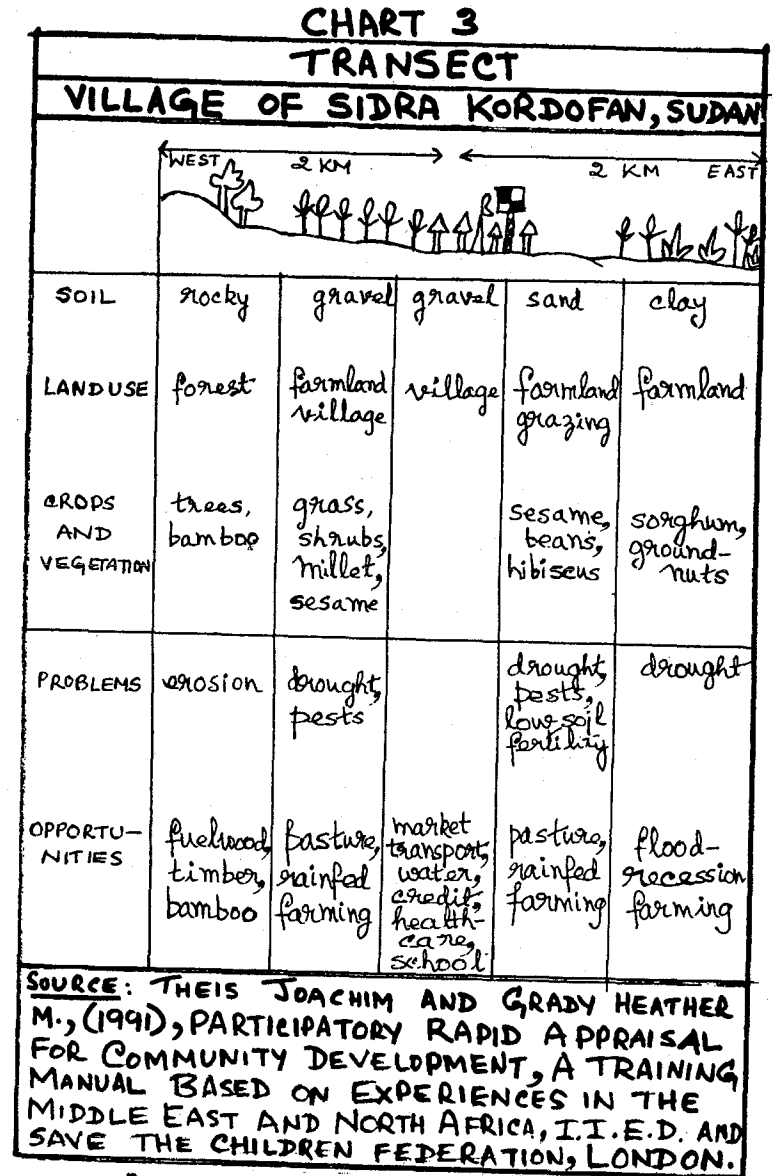 CHART 3
TRANSECT
VILLAGE OF SIDRA KORDOFAN, SUDAN
WEST 2 KM 2 KM EAST
SOIL rocky gravel gravel sand clay
LAND USE forest farmland village farmland farmland
village grazing
CROPS AND VEGETATION
trees, bamboo
grass, shrubs, millet, sesame
sesame, beans, hibiscus
sorghum, ground-nuts
PROBLEMS
erosion
drought, pests
drought, pests, low soil fertility
drought
OPPORTU-
NITIES
fuelwood,
timber,
bamboo
pasture,
rainfed
farming
market
transport,
water,
credit,
health-
care,
school
pasture,
rainfed
farming
flood-
recession
farming
SOURCE: THEIS JOACHIM AND GRADY HEATHER
M., (1991), PARTICIPATORY RAPID APPRAISAL
FOR COMMUNITY DEVELOPMENT, A TRAINING
MANUAL BASED ON EXPERIENCES IN THE
MIDDLE EAST AND NORTH AFRICA, I.I.E.D. AND
SAVE THE CHILDREN FEDERATION, LONDON.